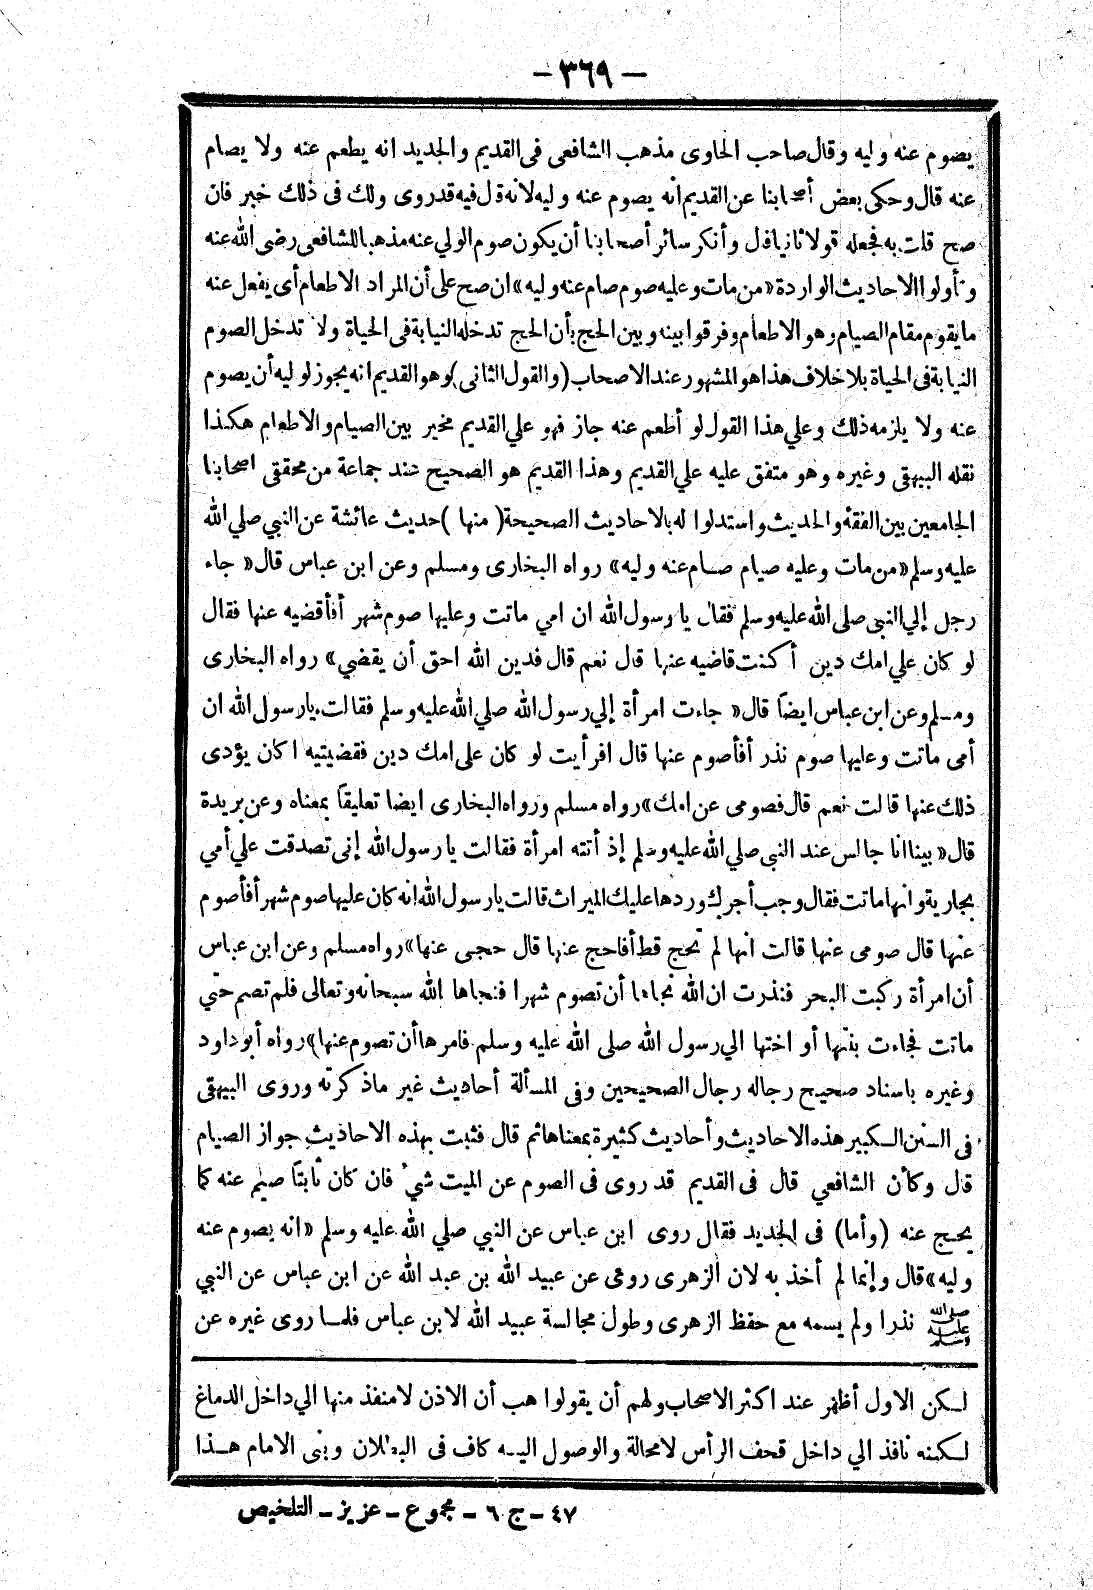 — ٣٦٩ —
يصوم عنه وليه وقال صاحب الحاوى مذهب الشافعى فى القديم والجديد انه يطعم عنه ولا يصام
عنه قال وحكى بعض أصحابنا عن القديم انه يصوم عنه وليه لانه قال فيه قد روى ولك فى ذلك خبر فان
صح قلت به فجعله قولا ثانيا قال وأنكر سائر أصحابنا أن يكون صوم الولي عنه مذهبا للشافعى رضى الله عنه
وتأولوا الاحاديث الواردة «من مات وعليه صوم صام عنه وليه» ان صح على أن المراد الاطعام أى يفعل عنه
ما يقوم مقام الصيام وهو الاطعام وفرقوا بينه وبين الحج بأن الحج تدخله النيابة فى الحياة ولا تدخل الصوم
النيابة فى الحياة بلا خلاف هذا هو المشهور عند الاصحاب (والقول الثانى) وهو القديم انه يجوز لوليه أن يصوم
عنه ولا يلزمه ذلك وعلي هذا القول لو أطعم عنه جاز فهو علي القديم مخير بين الصيام والاطعام هكذا
نقله البيهقى وغيره وهو متفق عليه علي القديم وهذا القديم هو الصحيح عند جماعة من محققى اصحابنا
الجامعين بين الفقه والحديث واستدلوا له بالاحاديث الصحيحة (منها) حديث عائشة عن النبي صلي الله
عليه وسلم «من مات وعليه صيام صام عنه وليه» رواه البخارى ومسلم وعن ابن عباس قال « جاء
رجل إلي النبى صلى الله عليه وسلم فقال يا رسول الله ان امي ماتت وعليها صوم شهر أفأقضيه عنها فقال
لو كان علي امك دين أكنت قاضيه عنها قال نعم قال فدين الله احق أن يقضي» رواه البخارى
ومسلم وعن ابن عباس ايضًا قال « جاءت امرأة إلي رسول الله صلي الله عليه وسلم فقالت يارسول الله ان
أمى ماتت وعليها صوم نذر أفأصوم عنها قال افرأيت لو كان على امك دين فقضيتيه اكان يؤدى
ذلك عنها قالت نعم قال فصومى عن امك» رواه مسلم ورواه البخارى ايضا تعليقًا بمعناه وعن بريدة
قال « بينا انا جالس عند النبى صلي الله عليه وسلم إذ أتته امرأة فقالت يا رسول الله إنى تصدقت علي أمي
بجارية وانها ماتت فقال وجب أجرك وردها عليك الميراث قالت يارسول الله انه كان عليها صوم شهر أفأصوم
عنها قال صومى عنها قالت انها لم تحج قط أفاحج عنها قال حجى عنها» رواه مسلم وعن ابن عباس
أن امرأة ركبت البحر فنذرت ان الله نجاها أن تصوم شهرا فنجاها الله سبحانه وتعالى فلم تصم حتي
ماتت فجاءت بنتها أو اختها الي رسول الله صلى الله عليه وسلم فامرها أن تصوم عنها» رواه أبو داود
وغيره باسناد صحيح رجاله رجال الصحيحين وفى المسألة أحاديث غير ماذكرته وروى البيهقى
فى السنن الكبير هذه الاحاديث وأحاديث كثيرة بمعناها ثم قال فثبت بهذه الاحاديث جواز الصيام
قال وكأن الشافعي قال فى القديم قد روى فى الصوم عن الميت شيء فان كان ثابتًا صيم عنه كما
يحج عنه (وأما) فى الجديد فقال روى ابن عباس عن النبي صلي الله عليه وسلم «انه يصوم عنه
وليه» قال وإنما لم أخذ به لان الزهرى روى عن عبيد الله بن عبد الله عن ابن عباس عن النبي
ﷺ نذرا ولم يسمه مع حفظ الزهرى وطول مجالسة عبيد الله لابن عباس فلما روى غيره عن
لكن الاول أظهر عند اكثر الاصحاب ولهم أن يقولوا هب أن الاذن لامنفذ منها الي داخل الدماغ
لكنه نافذ الي داخل قحف الرأس لا محالة والوصول اليه كاف فى البطلان وبنى الامام هذا
٤٧ - ج ٦ - مجموع - عزيز - التلخيص